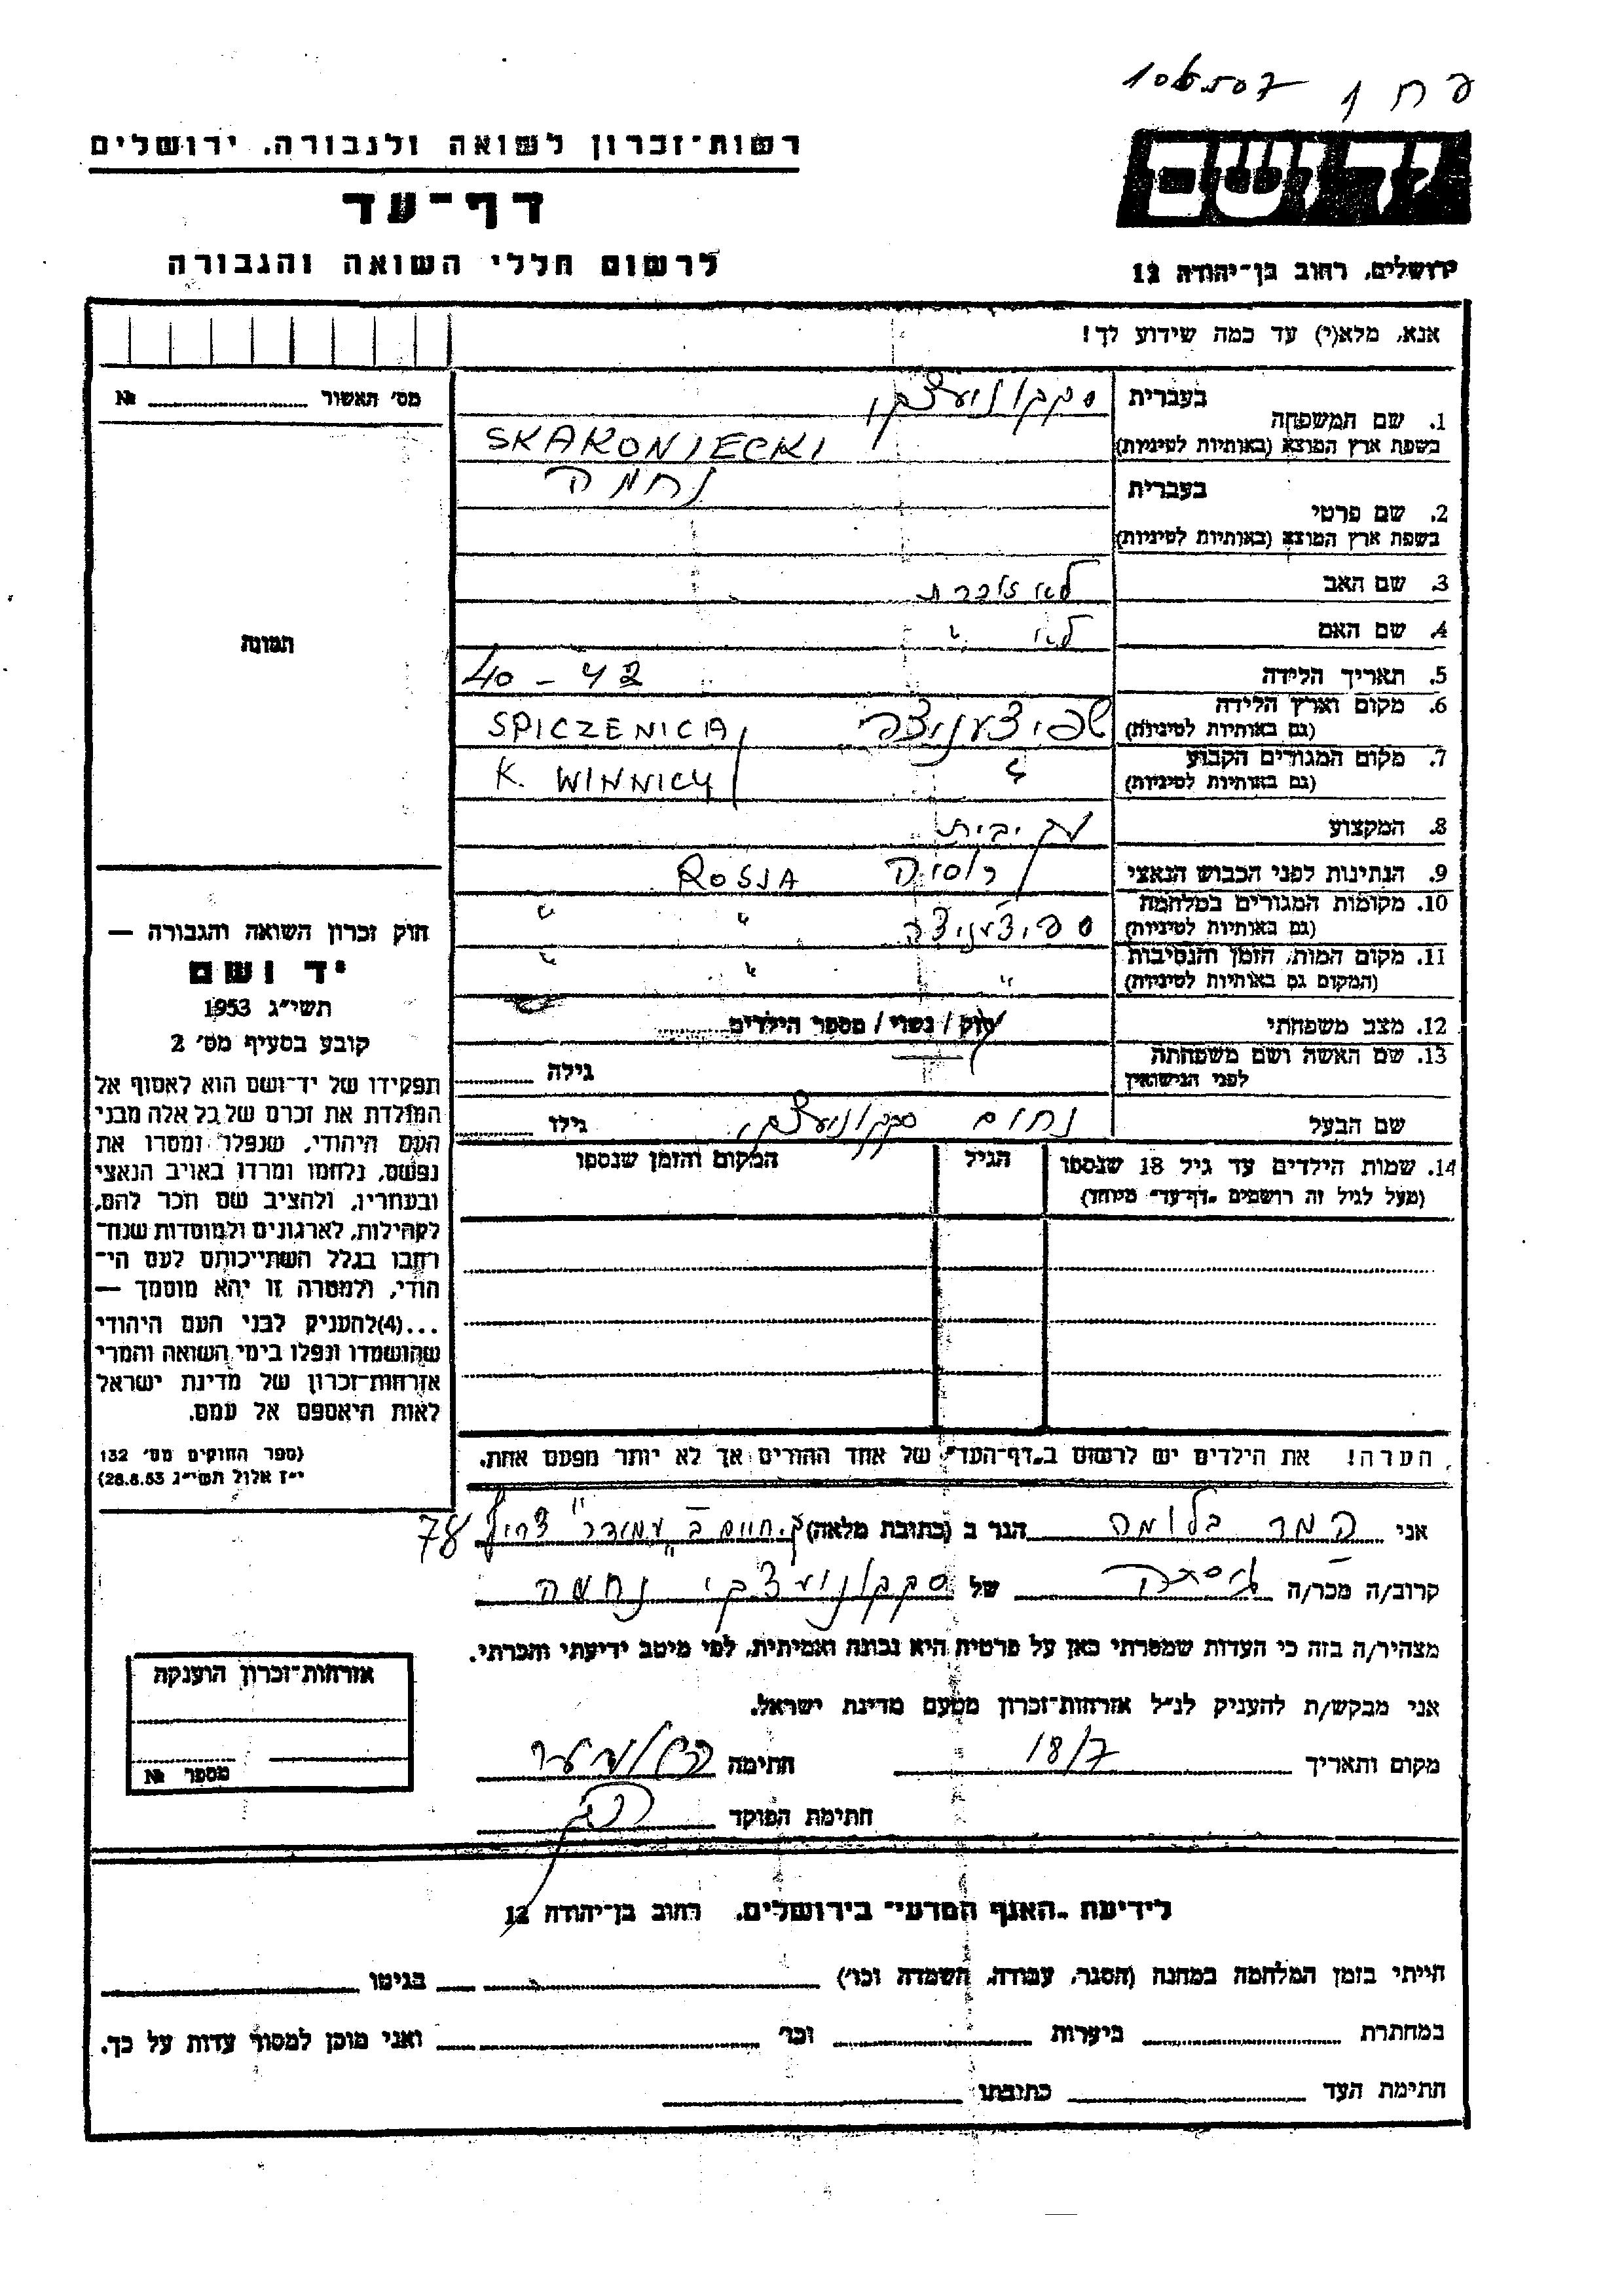 רשות־זכרון לשואה ולגבורה, ירושלים
דף־עד
לרשום חללי השואה והגבורה
ידושם
ירושלים, רחוב בן־יהודה 12
אנא, מלא(י) עד כמה שידוע לך!
מס' האשור № 
תמונה
חוק זכרון השואה והגבורה —
יד ושם
תשי״ג 1953
קובע בסעיף מס׳ 2
תפקידו של יד־ושם הוא לאסוף אל
המולדת את זכרם של כל אלה מבני
העם היהודי, שנפלו ומסרו את
נפשם, נלחמו ומרדו באויב הנאצי
ובעוזריו, ולהציב שם וזכר להם,
לקהילות, לארגונים ולמוסדות שנח־
רבו בגלל השתייכותם לעם הי־
הודי, ולמטרה זו יהא מוסמך —
...(4)להעניק לבני העם היהודי
שהושמדו ונפלו בימי השואה והמרי
אזרחות־זכרון של מדינת ישראל
לאות היאספם אל עמם.
(ספר החוקים מס׳ 132
י״ז אלול תשי״ג 28.8.53)
1. שם המשפחה בעברית סקקוניעצקי
בשפת ארץ המוצא (באותיות לטיניות) SKAKONIECKI
2. שם פרטי בעברית נחמה
בשפת ארץ המוצא (באותיות לטיניות)
3. שם האב לא זוכרת
4. שם האם לא "
5. תאריך הלידה 40 - 42
6. מקום וארץ הלידה (גם באותיות לטיניות) שפיצעניצה SPICZENICA
7. מקום המגורים הקבוע (גם באותיות לטיניות) " K. WINNICY
8. המקצוע עק. בית
9. הנתינות לפני הכבוש הנאצי רוסיה ROSJA
10. מקומות המגורים במלחמה (גם באותיות לטיניות) ספיצניצה " "
11. מקום המות, הזמן והנסיבות (המקום גם באותיות לטיניות) " " "
12. מצב משפחתי רווק / נשוי / מספר הילדים
13. שם האשה ושם משפחתה לפני הנישואין גילה
שם הבעל נחום סקקוניעצקי גילו
14. שמות הילדים עד גיל 18 שנספו הגיל המקום והזמן שנספו
(מעל לגיל זה רושמים „דף־עד״ מיוחד)
הערה! את הילדים יש לרשום ב„דף־העד״ של אחד ההורים אך לא יותר מפעם אחת.
אני המר בלומה הגר ב (כתובת מלאה) ק. חיים ב "עמידר" צריף 78
קרוב/ה מכר/ה גיסתה של סקקוניעצקי נחמה
מצהיר/ה בזה כי העדות שמסרתי כאן על פרטיה היא נכונה ואמיתית, לפי מיטב ידיעתי והכרתי.
אני מבקש/ת להעניק לנ״ל אזרחות־זכרון מטעם מדינת ישראל.
מקום ותאריך 18/7 חתימה
חתימת הפוקד
אזרחות־זכרון הוענקה
מספר №
לידיעת „האגף המדעי״ בירושלים, רחוב בן־יהודה 12
הייתי בזמן המלחמה במחנה (הסגר, עבודה, השמדה וכו׳) בגיטו
במחתרת ביערות וכו׳ ואני מוכן למסור עדות על כך.
חתימת העד כתובתו